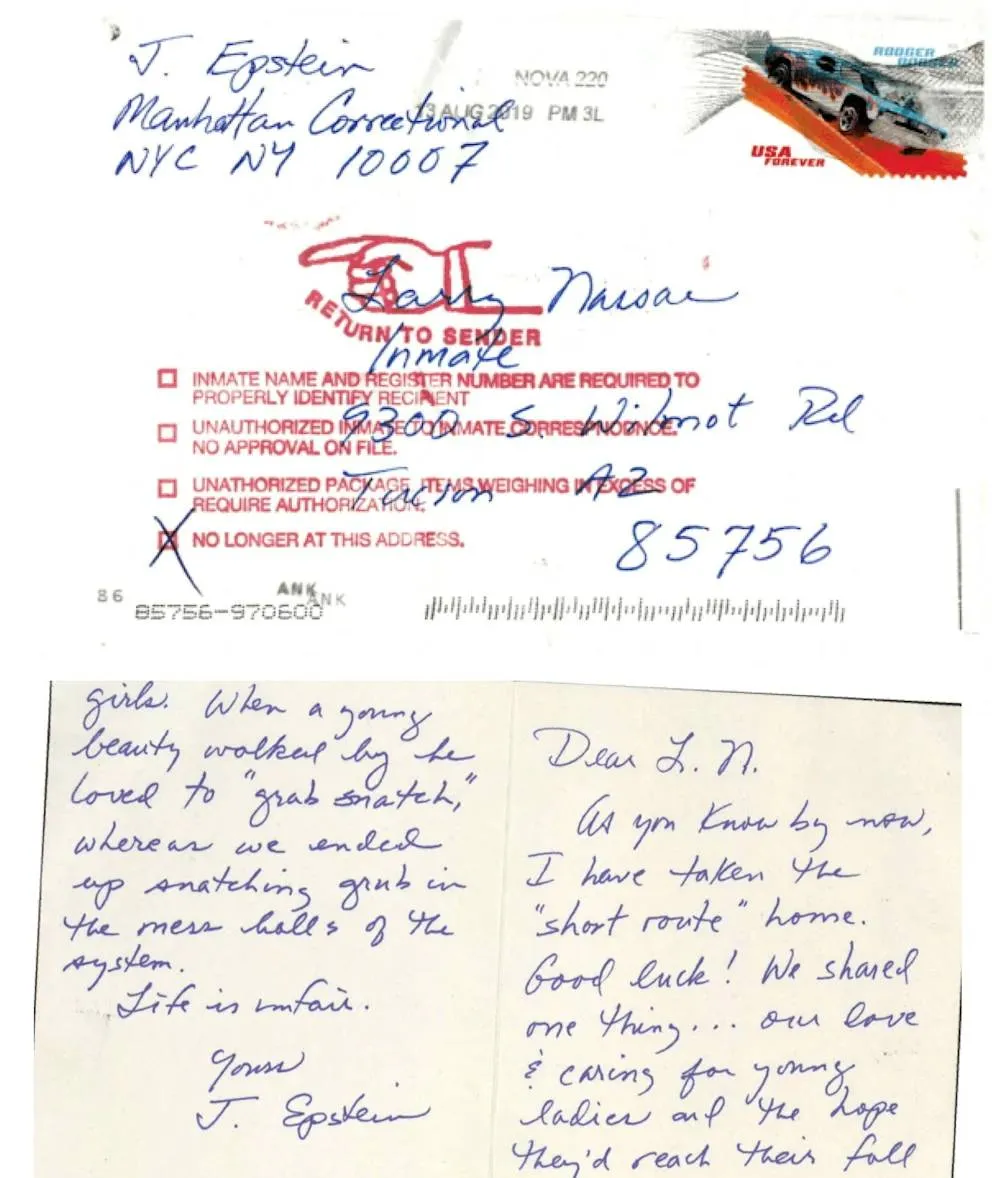 J. Epstein
Manhattan Correctional
NYC NY 10007
NOVA 220
13 AUG 2019 PM 3L
RODGER DODGER
USA
FOREVER
Larry Nassar
Inmate
9300 S. Wilmot Rd
Tucson AZ
85756
RETURN TO SENDER
INMATE NAME AND REGISTER NUMBER ARE REQUIRED TO
PROPERLY IDENTIFY RECIPIENT
UNAUTHORIZED INMATE TO INMATE CORRESPNODNCE.
NO APPROVAL ON FILE.
UNATHORIZED PACKAGE, ITEMS WEIGHING IN EXCESS OF
REQUIRE AUTHORIZATION.
X NO LONGER AT THIS ADDRESS.
86
ANK
ANK
85756-970600
girls. When a young
beauty walked by he
loved to "grab snatch,"
whereas we ended
up snatching grub in
the mess halls of the
system.
Life is unfair.
Yours
J. Epstein
Dear L. N.
As you know by now,
I have taken the
"short route" home.
Good luck! We shared
one thing... our love
& caring for young
ladies and the hope
they'd reach their full